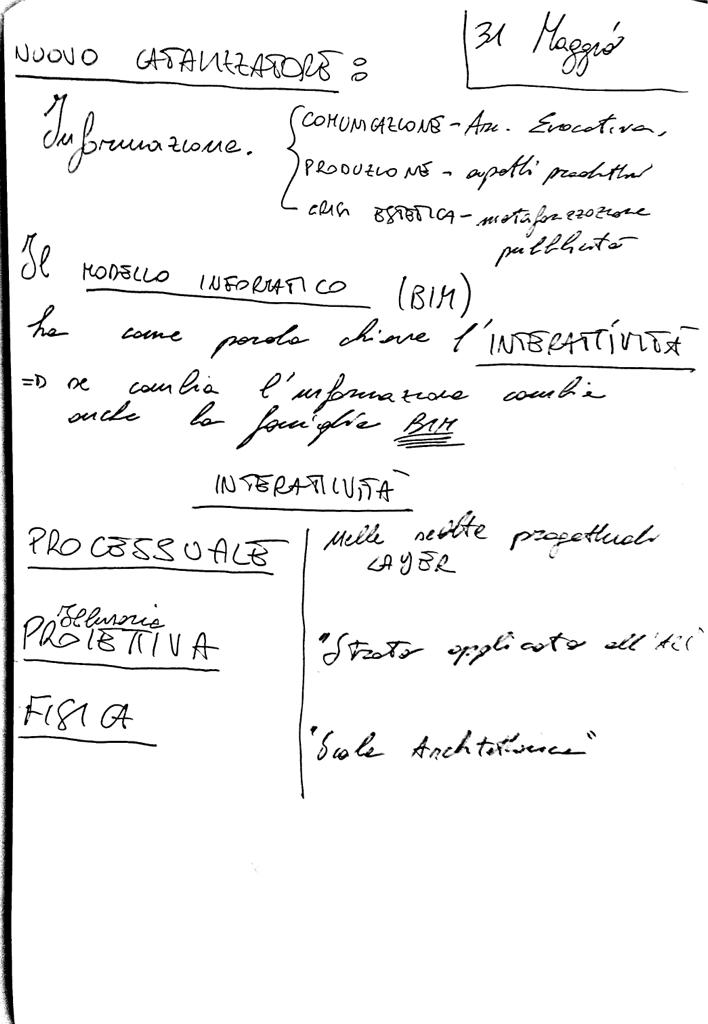 31 Maggio
NUOVO CATALIZZATORE :
Informazione.
COMUNICAZIONE - Arc. Evocativa,
PRODUZIONE - aspetti produttivi
CRISI ESTETICA - metaforizzazione
pubblicità
Il MODELLO INFORMATICO (BIM)
ha come parola chiave l'INTERATTIVITÀ
=D se cambia l'informazione cambia
anche la famiglia BIM
INTERATTIVITÀ
PROCESSUALE
Nelle scelte progettuali
LAYER
Illusoria
PROIETTIVA
"Strato applicato all'
FISICA
"Scala Architettonica"